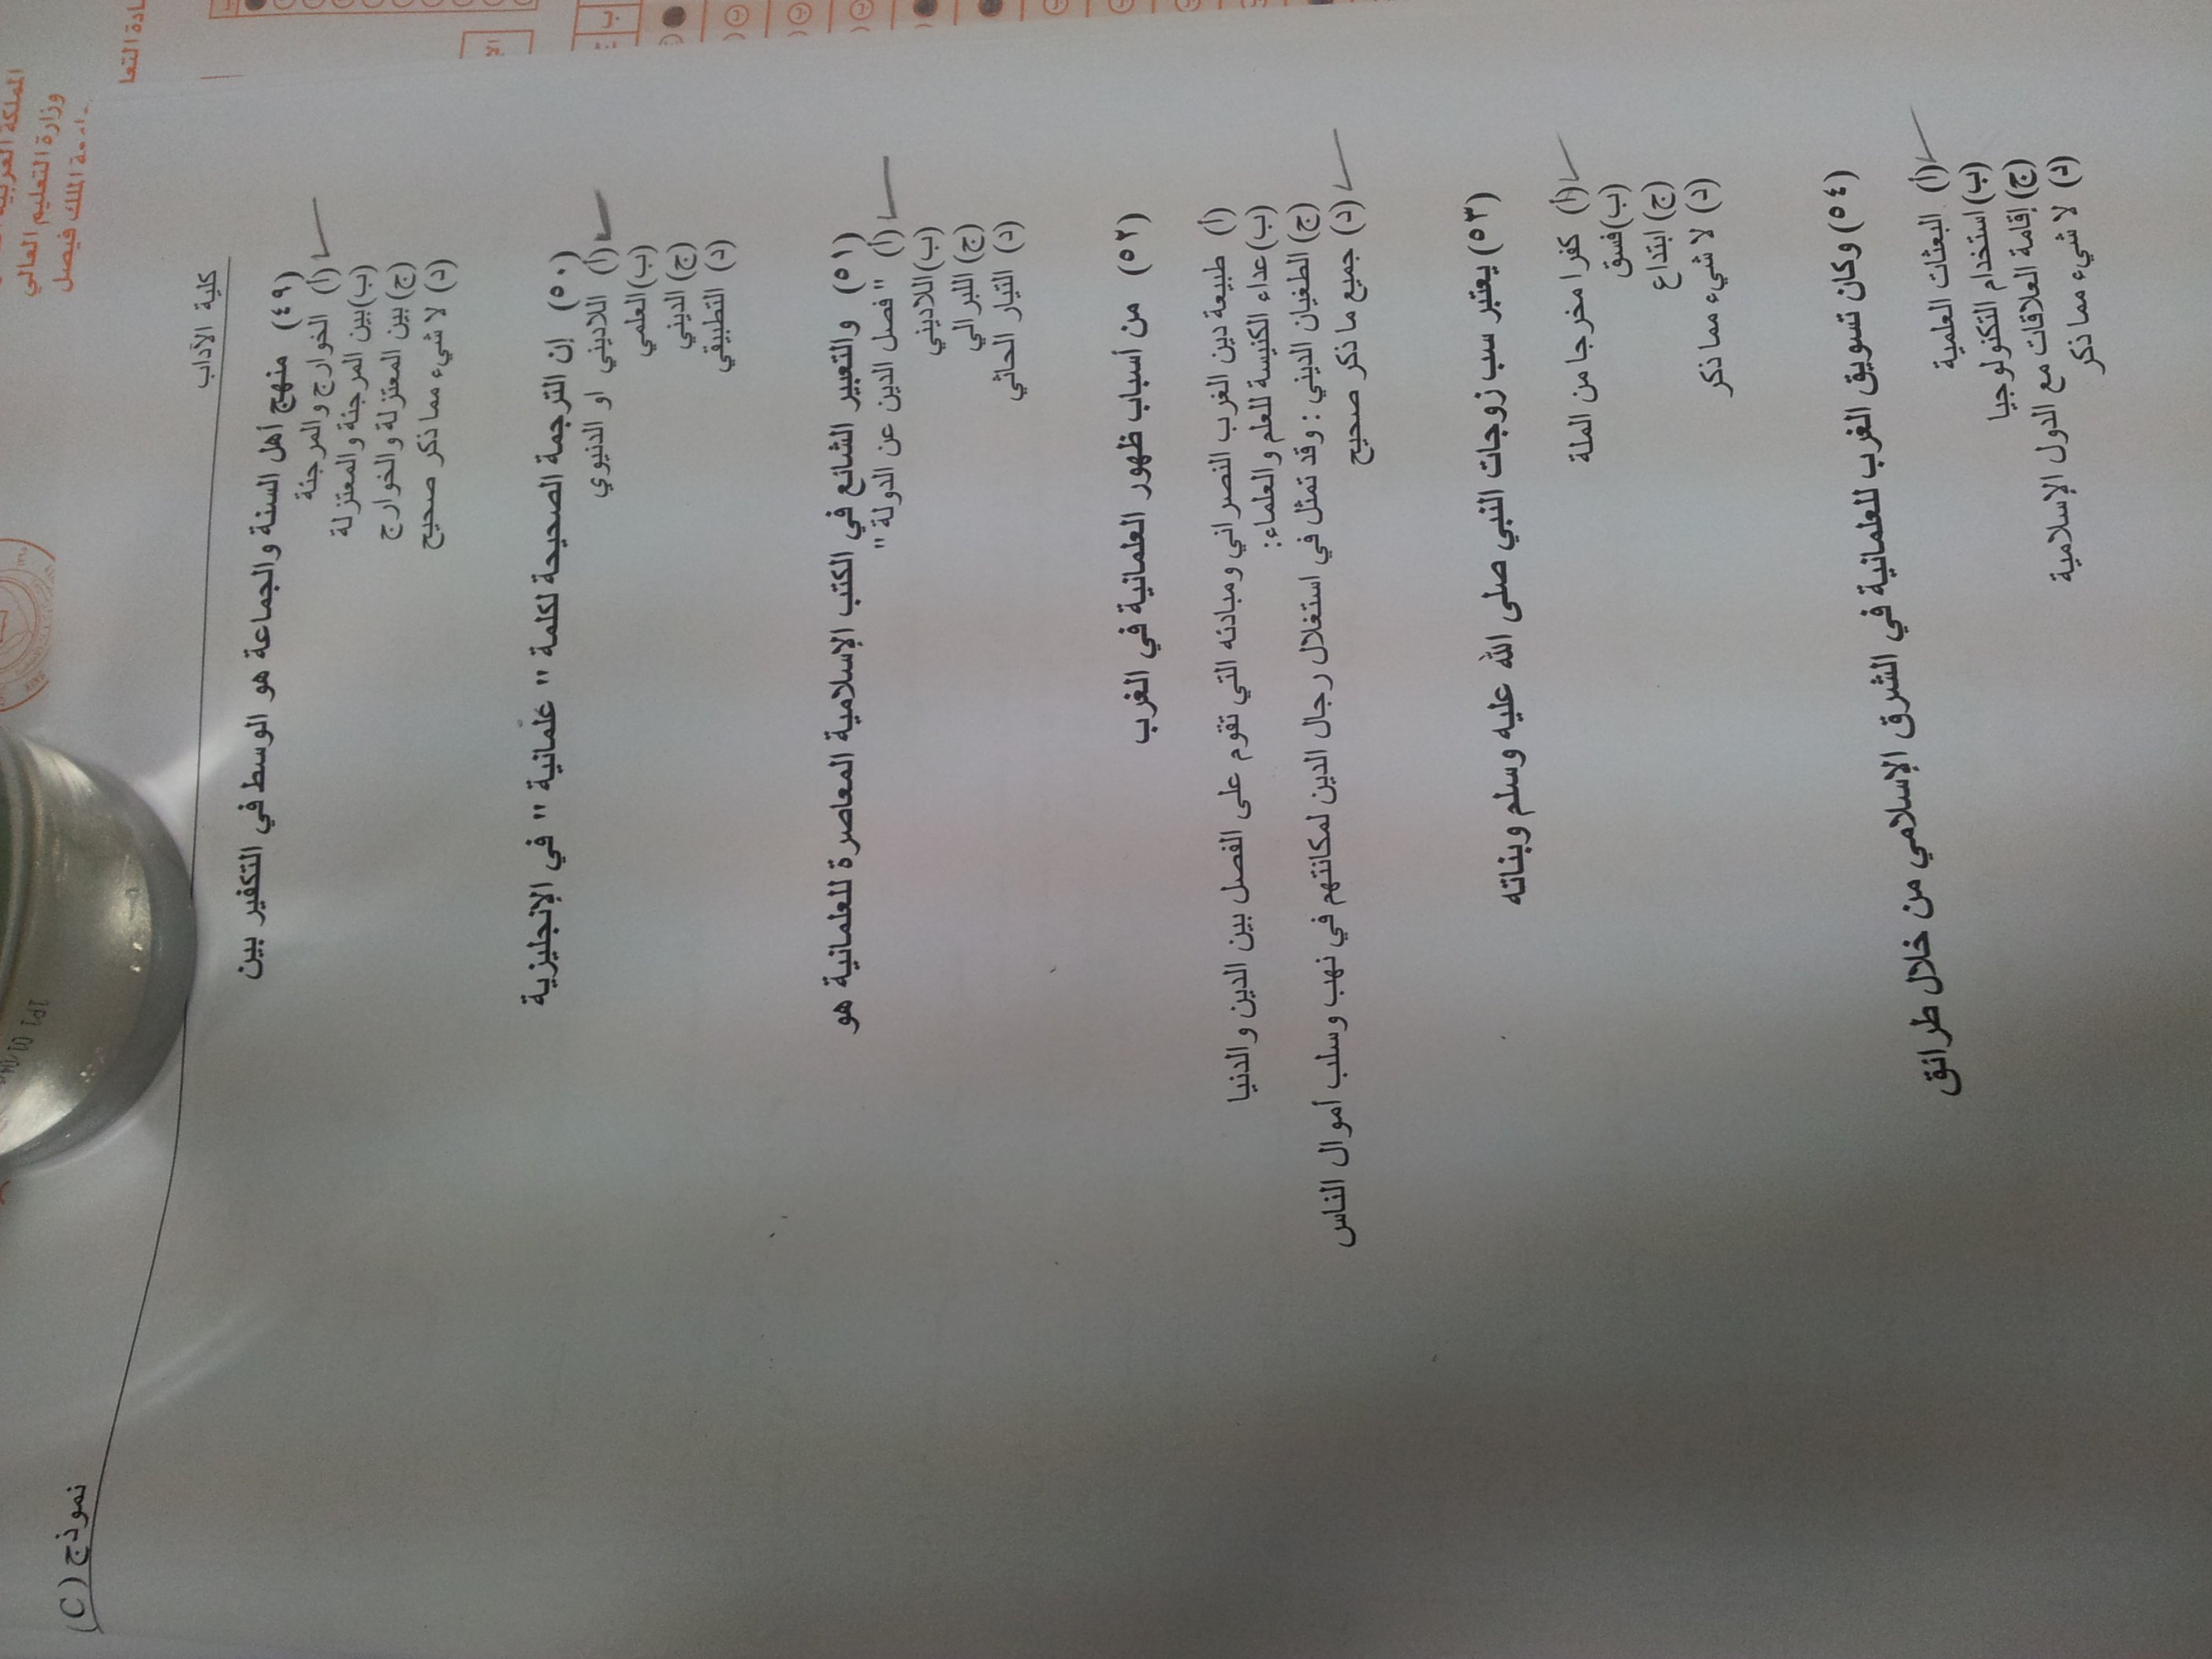 نموذج (C)
كلية الآداب
(٤٩) منهج أهل السنة والجماعة هو الوسط في التكفير بين
(أ) الخوارج والمرجئة
(ب) بين المرجئة والمعتزلة
(ج) بين المعتزلة والخوارج
(د) لا شيء مما ذكر صحيح
(٥٠) إن الترجمة الصحيحة لكلمة " علمانية " في الإنجليزية
(أ) اللاديني او الدنيوي
(ب) العلمي
(ج) الديني
(د) التطبيقي
(٥١) والتعبير الشائع في الكتب الإسلامية المعاصرة للعلمانية هو
(أ) " فصل الدين عن الدولة "
(ب) اللاديني
(ج) اللبرالي
(د) التيار الحاثي
(٥٢) من أسباب ظهور العلمانية في الغرب
(أ) طبيعة دين الغرب النصراني ومبادئه التي تقوم على الفصل بين الدين والدنيا
(ب) عداء الكنيسة للعلم والعلماء:
(ج) الطغيان الديني : وقد تمثل في استغلال رجال الدين لمكانتهم في نهب وسلب أموال الناس
(د) جميع ما ذكر صحيح
(٥٣) يعتبر سب زوجات النبي صلى الله عليه وسلم وبناته
(أ) كفرا مخرجا من الملة
(ب) فسق
(ج) ابتداع
(د) لا شيء مما ذكر
(٥٤) وكان تسويق الغرب للعلمانية في الشرق الإسلامي من خلال طرائق
(أ) البعثات العلمية
(ب) استخدام التكنولوجيا
(ج) إقامة العلاقات مع الدول الإسلامية
(د) لا شيء مما ذكر
المملكة العربية
وزارة التعليم العالي
الملك فيصل